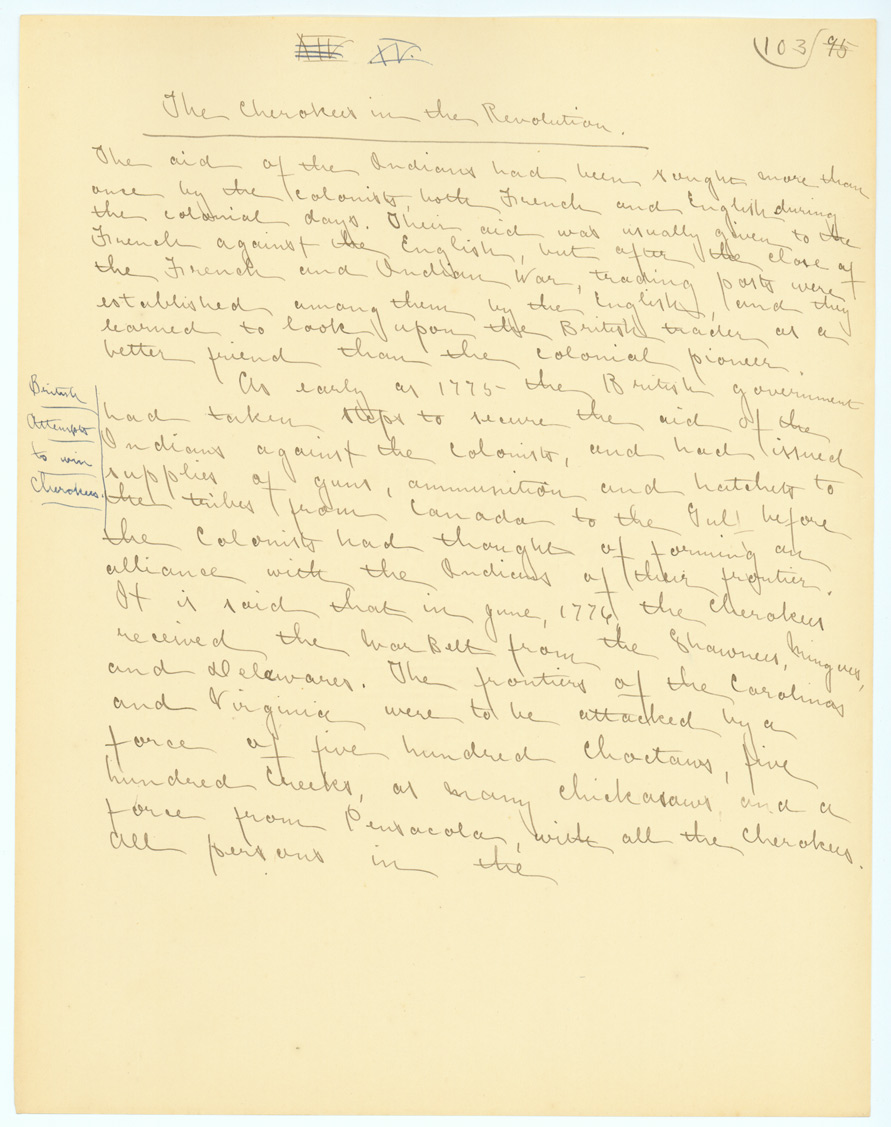 XIV XV. 103 95
The Cherokees in the Revolution.
The aid of the Indians had been sought more than
once by the colonists, both French and English during
the colonial days. Their aid was usually given to the
French against the English, but after the close of
the French and Indian War, trading posts were
established among them by the English, and they
learned to look upon the British trader as a
better friend than the colonial pioneer.
As early as 1775 the British government
British
Attempts
to win
Cherokees.
had taken steps to secure the aid of the
Indians against the colonists, and had issued
supplies of guns, ammunition and hatchets to
the tribes from Canada to the Gulf before
the Colonists had thought of forming an
alliance with the Indians of their frontier.
It is said that in June, 1776, the Cherokees
received the War Belt from the Shawnees, Mingoes,
and Delawares. The frontiers of the Carolinas
and Virginia were to be attacked by a
force of five hundred Choctaws, five
hundred Creeks, as many Chickasaws, and a
force from Pensacola, with all the Cherokees.
All persons in the